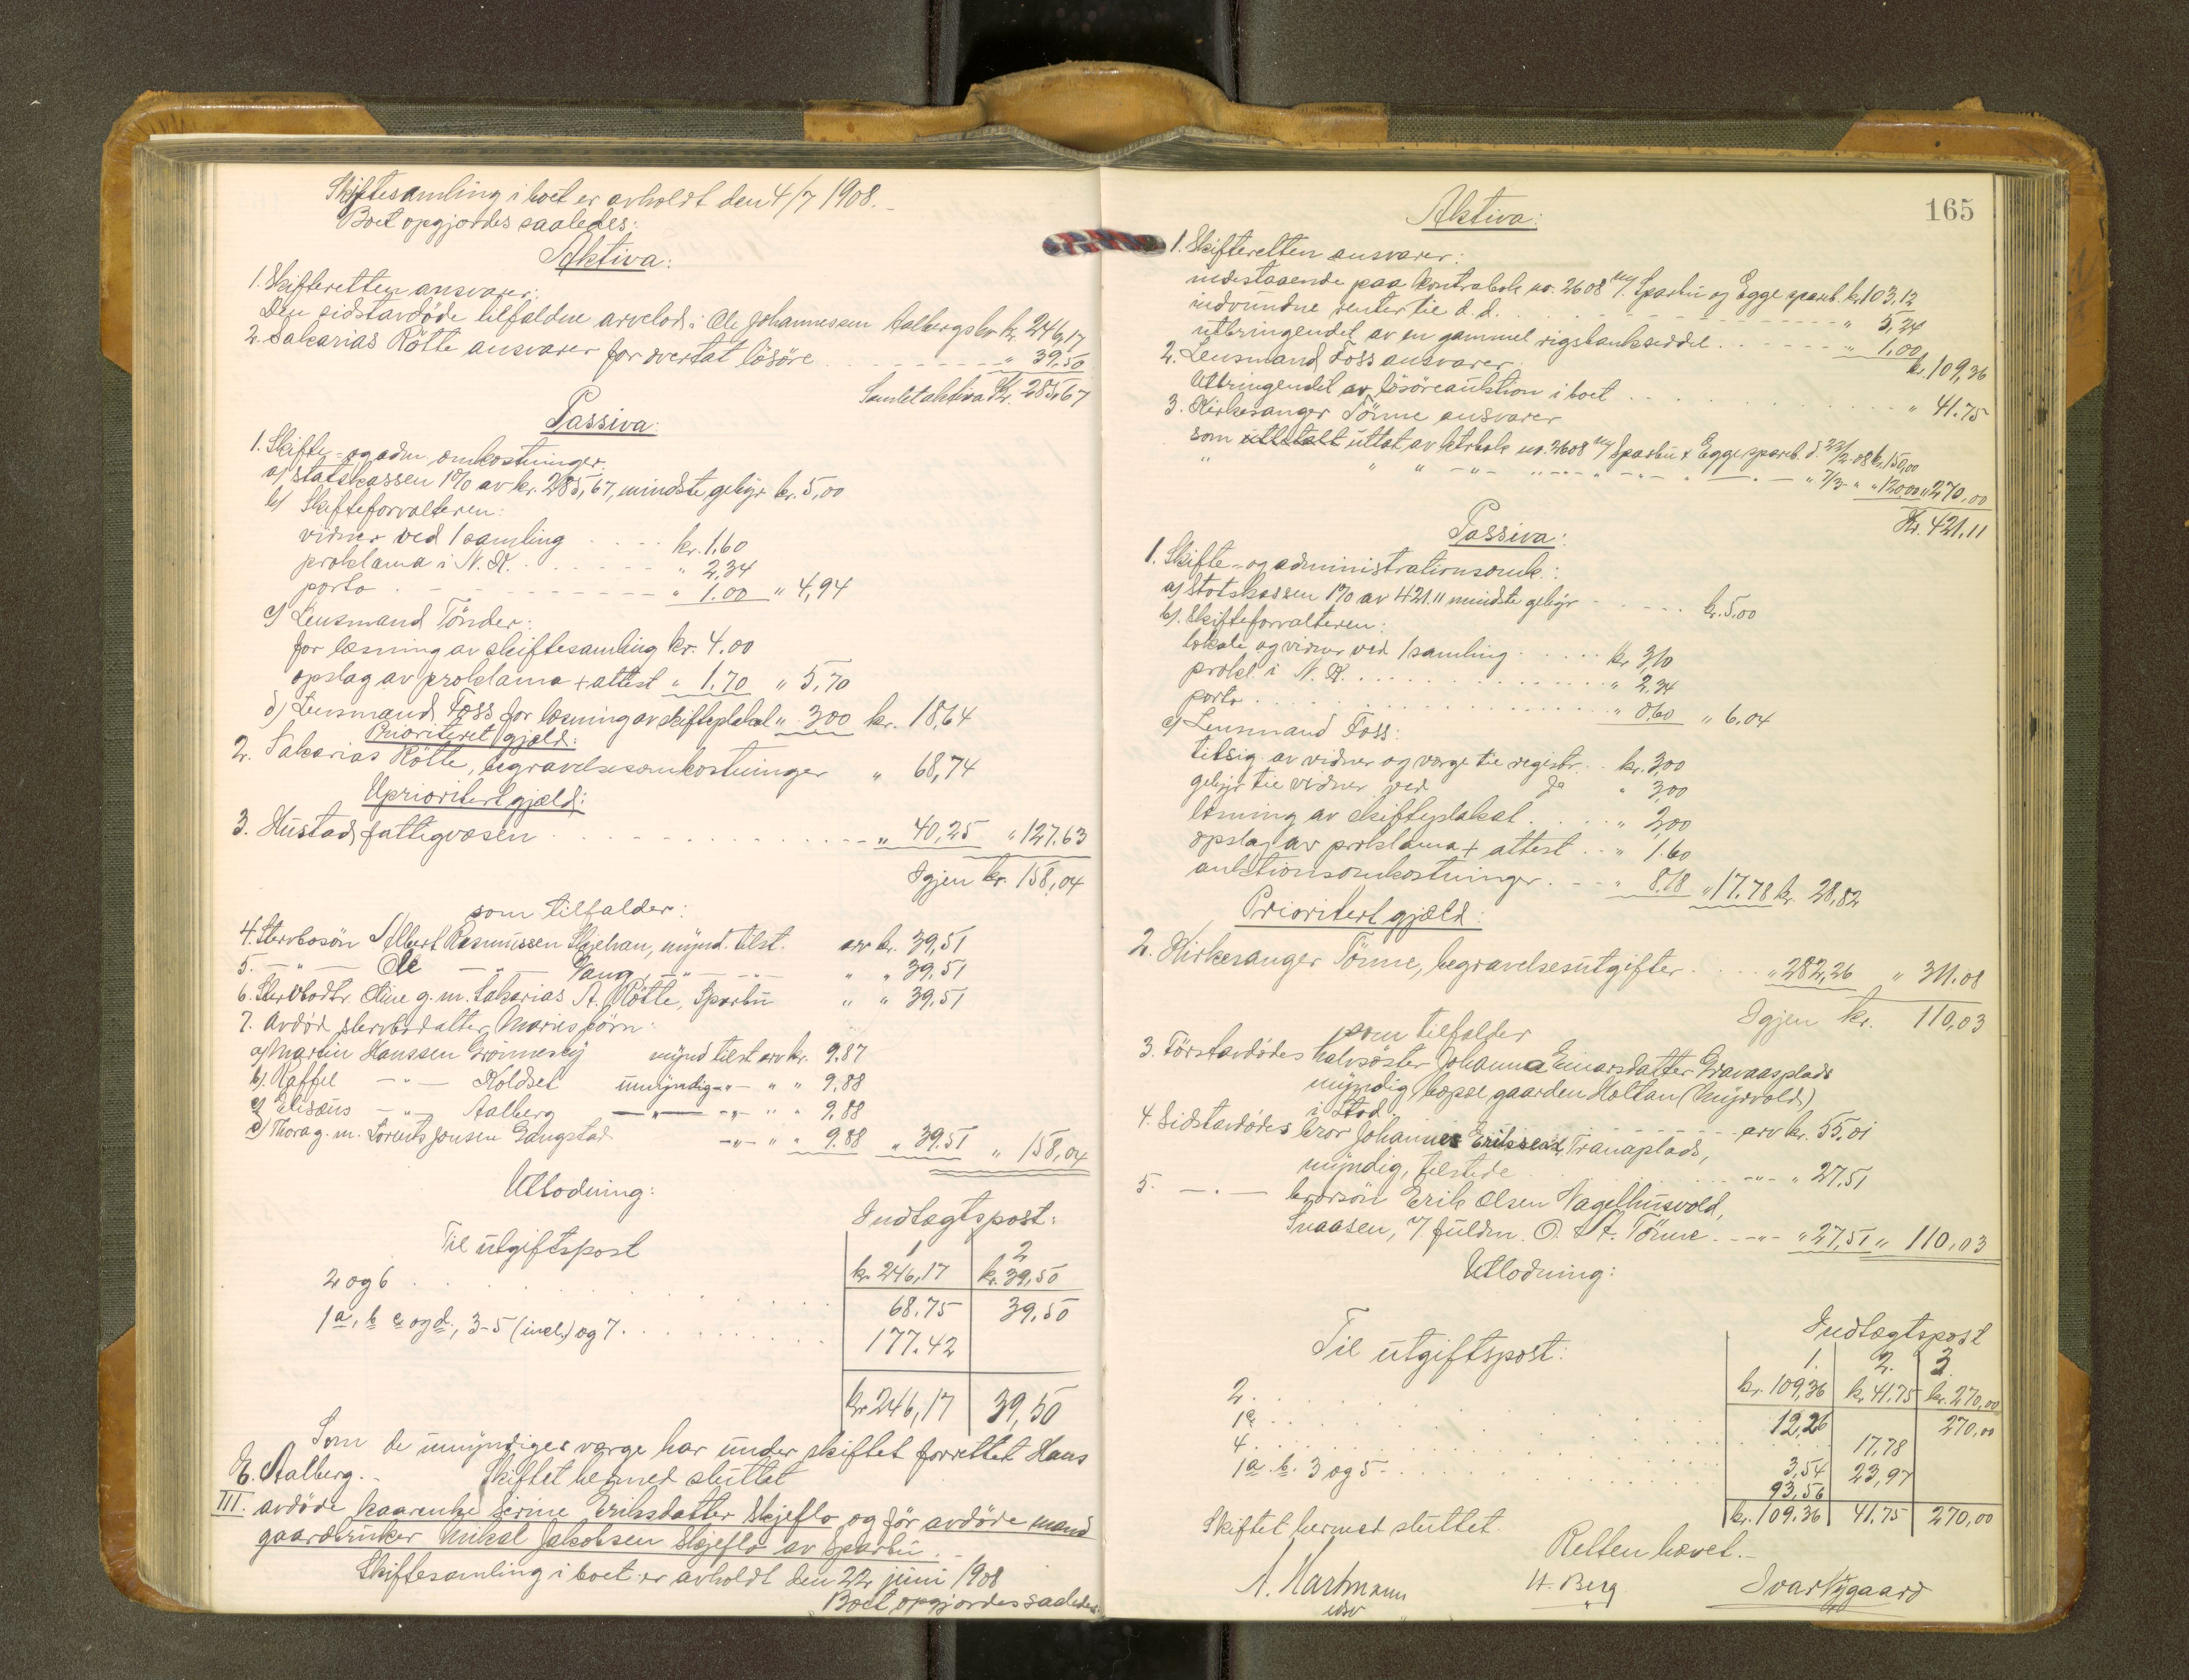 Skiftesamling i boet er avholdt den 4/7 1908.
Boet opgjordes saaledes:
Aktiva:
1. Skifteretten ansvarer:
Den sidstavdöde tilfaldne arvelod i Ole Johannessen Aalbergsbo kr. 246,17
2. Sakarias Rötte ansvarer for overtat lösöre " 39,50
Samlet aktiva Kr. 285,67
Passiva:
1. Skifte- og adm. omkostninger:
a) Statskassen 1% av kr. 285,67, mindste gebyr kr. 5,00
b) Skifteforvalteren:
vidner ved 1 samling kr. 1,60
proklama i N.K. " 2,34
porto " 1.00 " 4,94
c) Lensmand Tönder:
for læsning av skiftesamling kr. 4.00
opslag av proklama + attest " 1.70 " 5,70
d) Lensmand Foss for læsning av skifteplakat " 3,00 kr. 18,64
Prioritert gjæld:
2. Sakarias Rötte, begravelsesomkostninger " 68,74
Uprioritert gjæld:
3. Hustad fattigvæsen " 40,25 " 127.63
Igjen kr. 158,04
som tilfalder:
4. Stervbosön Albert Rasmussen Skjehan, mynd. tilst. arv kr. 39,51
5. — " — Ole — " — Vang, — " — " " 39,51
6. Stervbodtr. Oline g.m. Sakarias A. Rötte, Sparbu " " 39,51
7. Avdöd stervbodatter Maries börn:
a) Martin Hanssen Grönnesby mynd tilst arv kr. 9.87
b) Raffel — " — Koldset umyndig — " — " " 9,88
c) Elisæus — " — Aalberg — " — — " — " " 9.88
d) Thora g.m. Lorents Jonsen Gangstad — " — " " 9.88 " 39.51 " 158,04
Utlodning:
Indtægtspost:
Til utgiftspost
1 2
kr. 246,17 kr. 39,50
2 og 6 68.75 39,50
1a, b c og d, 3-5 (incl.) og 7. 177.42
kr 246,17 39,50
Som de umyndiges værge har under skiftet forrettet Hans
E. Aalberg.-
Skiftet hermed sluttet
III. avdöde kaarenke Serine Eriksdatter Skjeflo og för avdöde mand
gaardbruker Mikal Jakobsen Skjeflo av Sparbu.
Skiftesamling i boet er avholdt den 22 juni 1908
Boet opgjordes saaledes:
165
Aktiva:
1. Skifteretten ansvarer:
indestaaende paa kontrabok no. 2608 m/ Sparbu og Egge spareb. kr. 103,12
indvundne renter til d.d. " 5,24
utbringendet av en gammel rigsbankseddel " 1,00
kr. 109,36
2. Lensmand Foss ansvarer
Utbringendet av lösöreauktion i boet " 41.75
3. Kirkesanger Tönne ansvarer
som utbetalt uttat av ktrbok no. 2608 m/ Sparbu & Egge spareb. d. 22/2-08 kr. 150,00
" " " — " — " 7/3- " " 120,00 " 270,00
Kr. 421,11
Passiva:
1. Skifte- og administrationsomk.:
a) Statskassen 1% av 421.11 mindste gebyr kr. 5.00
b). Skifteforvalteren:
lokale og vidner ved 1 samling kr 3,10
prokl i N.K. " 2,34
porto " 0,60 " 6.04
c) Lensmand Foss:
tilsig. av vidner og værge til registr. kr. 3,00
gebyr til vidner ved do " 3,00
læsning av skifteplakat " 2,00
opslag av proklama + attest " 1.60
auktionsomkostninger " 8.18 " 17.78 kr. 28,82
Prioritert gjæld:
2. Kirkesanger Tönne, begravelsesutgifter " 282,26 " 311.08
Igjen kr. 110,03
som tilfalder
3. Förstavdödes halvsöster Johanna Einarsdatter Gravaasplads
myndig bopæl gaarden Holtan (Myrvold)
i Stod arv kr. 55,01
4. Sidstavdödes bror Johannes Erikssen, Tranaplads,
myndig, tilstede — " — " 27,51
5. — " — brorsön Erik Olsen Vagelhusvold,
Snaasen, v/ fuldm. O. St. Tönne — " — " 27,51 " 110,03
Utlodning:
Indtægtspost
Til utgiftspost:
1. 2. 3
kr. 109,36 kr. 41.75 kr. 270,00
2. 12,26 270,00
1c. 17.78
4. 3,54 23,97
1a. b. 3 og 5 93,56
kr. 109.36 41.75 270,00
Skiftet hermed sluttet.
Retten hævet.-
A. Hartmann H. Berg. Ivar Nygaard
edsv